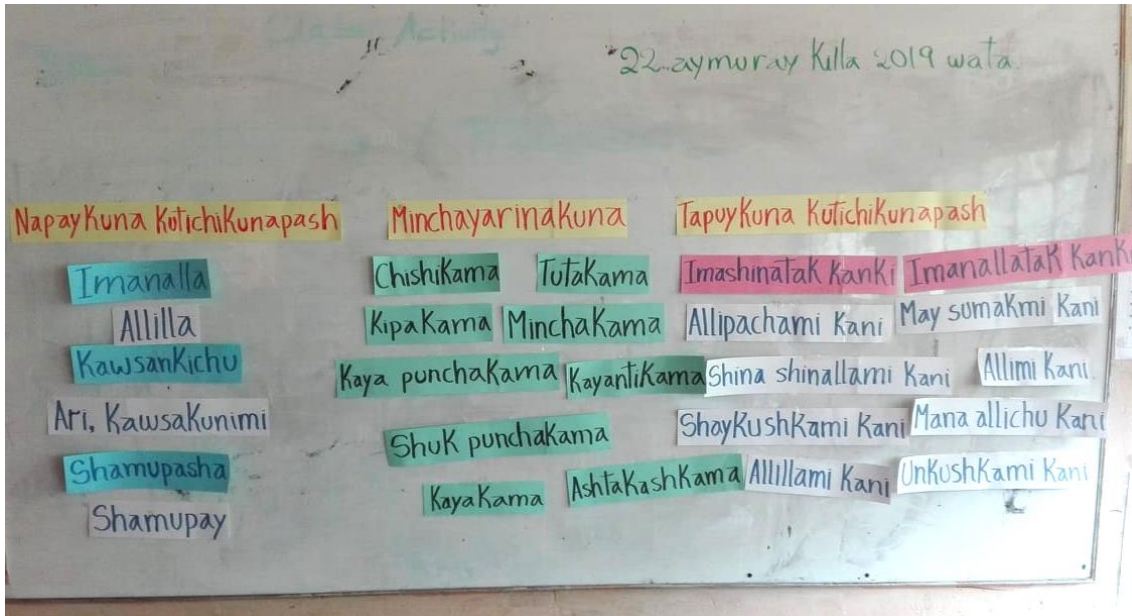 Class Activity
22 aymuray Killa 2019 wata.
Napaykuna Kutichikunapash
Imanalla
Allilla
Kawsankichu
Ari, Kawsakunimi
Shamupasha
Shamupay
Minchayarinakuna
Chishikama Tutakama
Kipakama Minchakama
Kaya punchakama Kayantikama
Shuk punchakama
Kayakama Ashtakashkama
Tapuykuna Kutichikunapash
Imashinatak Kanki Imanallatak
Allipachami Kani May sumakmi Kani
Shina shinallami Kani Allimi Kani
Shaykushkami Kani Mana allichu Kani
Allillami Kani Unkushkami Kani